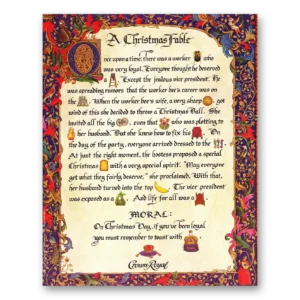 A Christmas Fable
Once upon a time, there was a worker who
was very loyal. Everyone thought he deserved
a. Except the jealous vice president. He
was spreading rumors that the worker bee's career was on
the. When the worker bee's wife, a very sharp, got
wind of this she decided to throw a Christmas Ball. She
invited all the big, even that who was plotting to
her husband. But she knew how to fix his. On
the day of the party, everyone arrived dressed to the.
At just the right moment, the hostess proposed a special
Christmas with a very special spirit. "May everyone
get what they fairly deserve," she proclaimed. With that,
her husband turned into the top. The vice president
was exposed as a. And life for all was a
MORAL:
On Christmas Day, if you've been loyal,
you must remember to toast with
Crown Royal